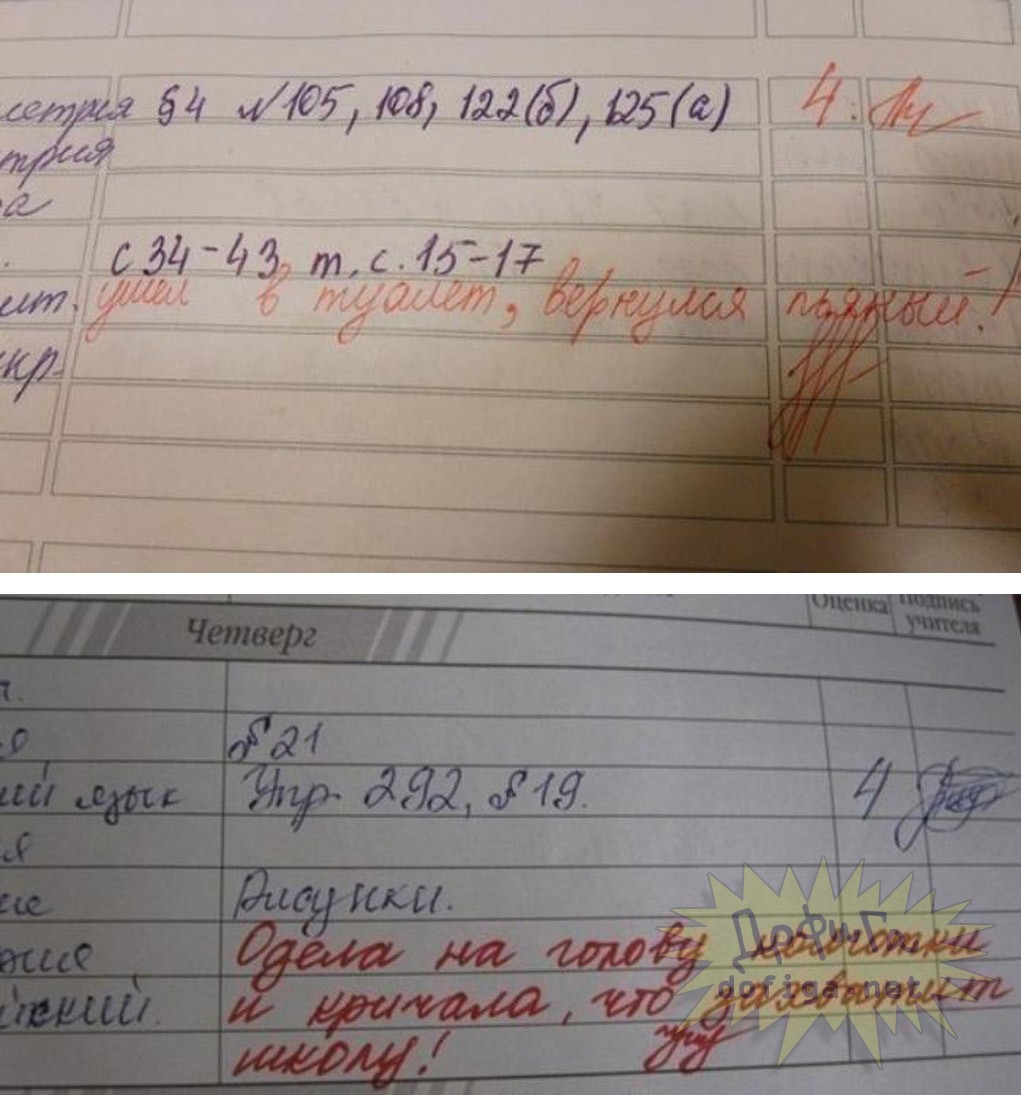 §4 №105, 108, 122(б), 125(а) 4
трия
с 34-43, т. с. 15-17
ушел в туалет, вернулся пьяный!
Оценка Подпись учителя
Четверг
№21
язык Упр. 292, §19. 4
Рисунки.
Одела на голову колготки
и кричала, что захватит
школу!
Дофига
dofiga.net